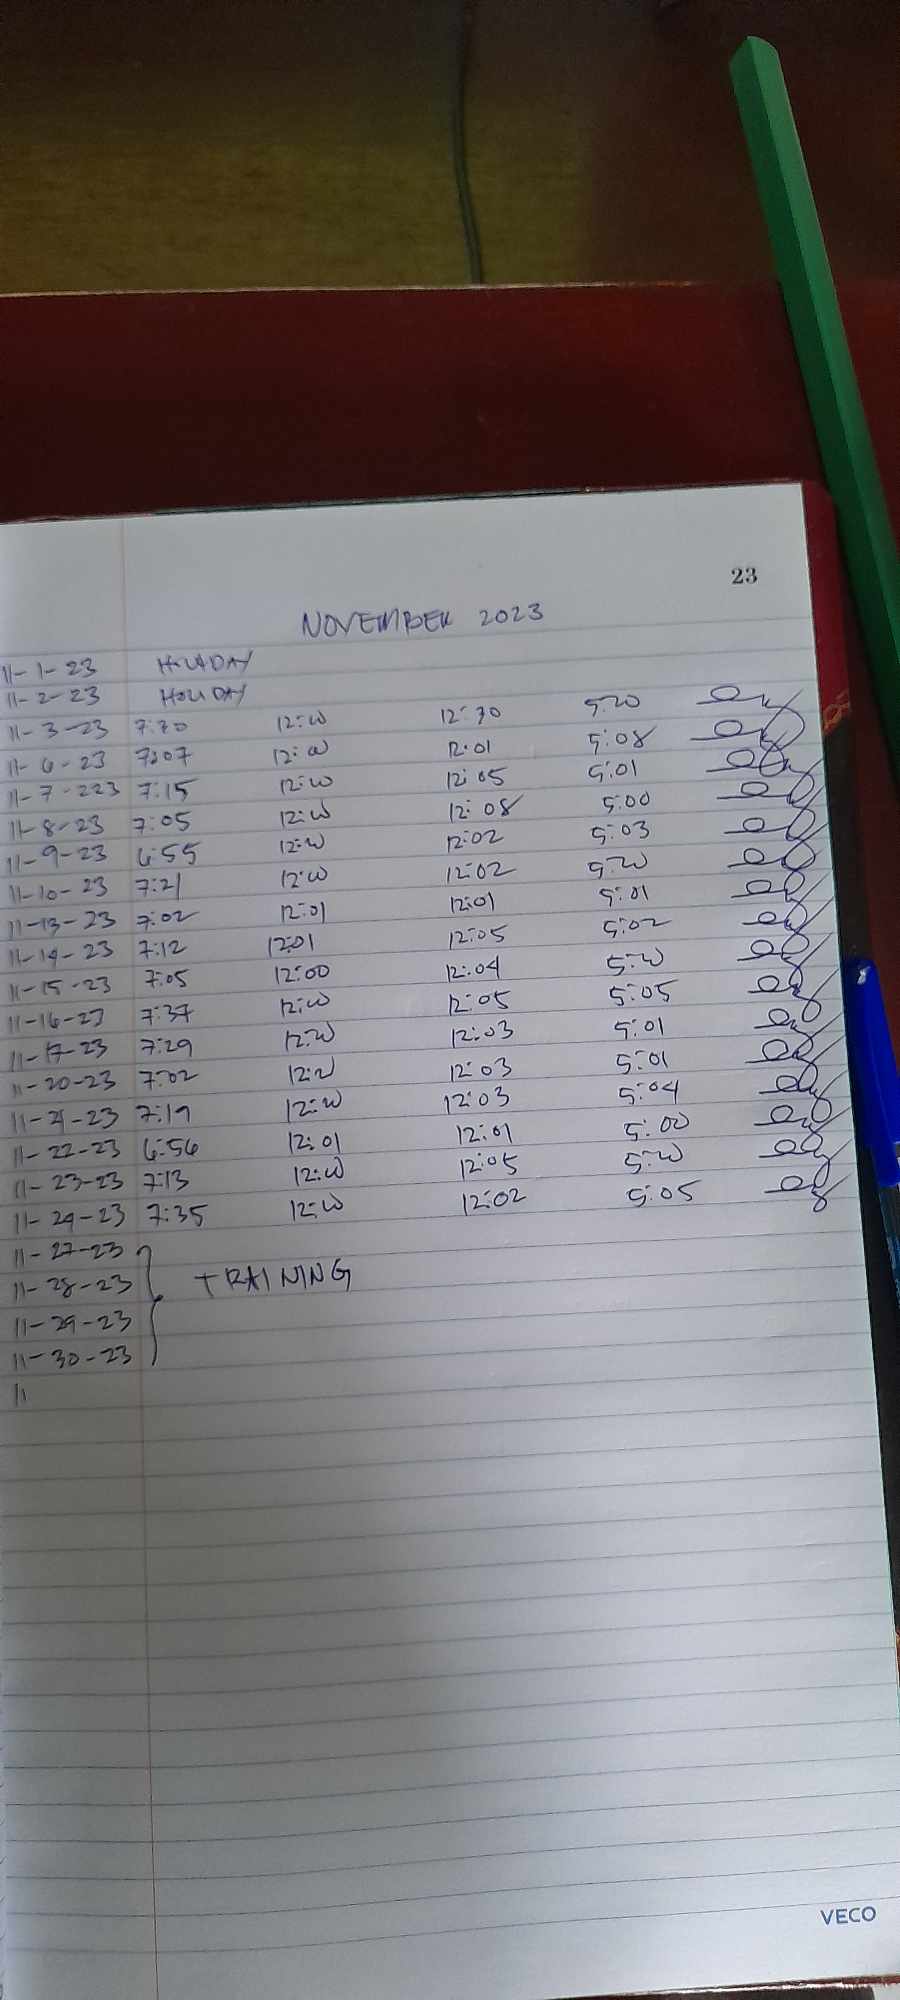 23
NOVEMBER 2023
11-1-23 HOLIDAY
11-2-23 HOLIDAY
11-3-23 7:30 12:00 12:30 5:00
11-6-23 7:07 12:00 12:01 5:08
11-7-223 7:15 12:00 12:05 5:01
11-8-23 7:05 12:00 12:08 5:00
11-9-23 6:55 12:00 12:02 5:03
11-10-23 7:21 12:00 12:02 5:00
11-13-23 7:02 12:01 12:01 5:01
11-14-23 7:12 12:01 12:05 5:02
11-15-23 7:05 12:00 12:04 5:00
11-16-23 7:37 12:00 12:05 5:05
11-17-23 7:29 12:00 12:03 5:01
11-20-23 7:02 12:00 12:03 5:01
11-21-23 7:19 12:00 12:03 5:04
11-22-23 6:56 12:01 12:01 5:00
11-23-23 7:13 12:00 12:05 5:00
11-24-23 7:35 12:00 12:02 5:05
11-27-23
11-28-23 TRAINING
11-29-23
11-30-23
11
VECO